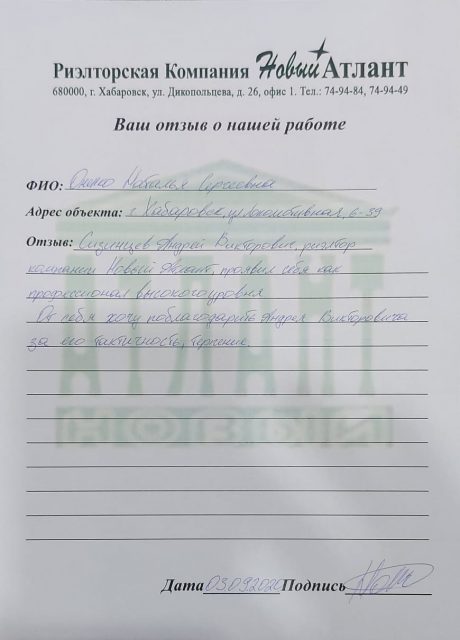 Риэлторская Компания Новый Атлант
680000, г. Хабаровск, ул. Дикопольцева, д. 26, офис 1. Тел.: 74-94-84, 74-94-49
Ваш отзыв о нашей работе
ФИО: Наталья Сергеевна
Адрес объекта: г. Хабаровск, ул Локомотивная, 6-39
Отзыв: Сизинцев Андрей Викторович, риэлтор
компании Новый Атлант, проявил себя как
профессионал высокого уровня
От себя хочу поблагодарить Андрея Викторовича
за его тактичность, терпение.
Дата 03.09.2020 Подпись